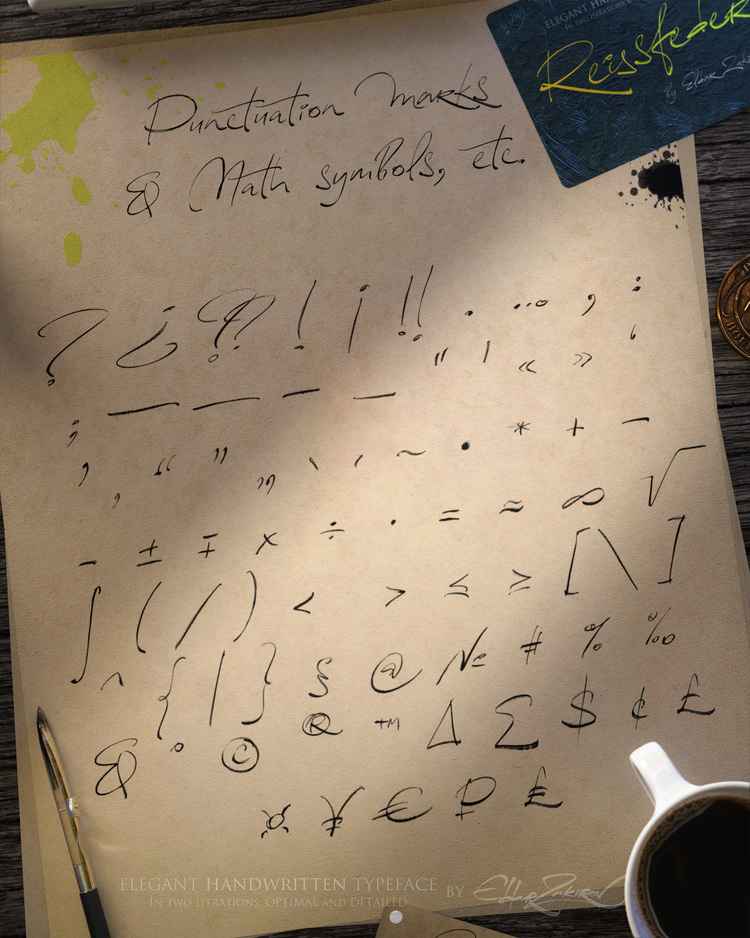 ELEGANT HAN
IN TWO ITERATIONS
Reissfeder
By Eldar Zakirov
Punctuation marks
& Math symbols, etc.
? ¿ ⁈ ! ¡ ‼ . … , :
; — — – - " ' « » ‘
’ ‚ “ ” „ ` ´ ~ • * + −
_ ± ∓ × ÷ · = ≈ ∞ √
∫ ( / ) < > ≤ ≥ [ \ ]
^ { | } § @ № # % ‰
& ° © ® ™ ∆ ∑ $ ¢ £
¤ ¥ € ₽ ₤
ELEGANT HANDWRITTEN TYPEFACE BY Eldar Zakirov
IN TWO ITERATIONS: OPTIMAL AND DETAILED